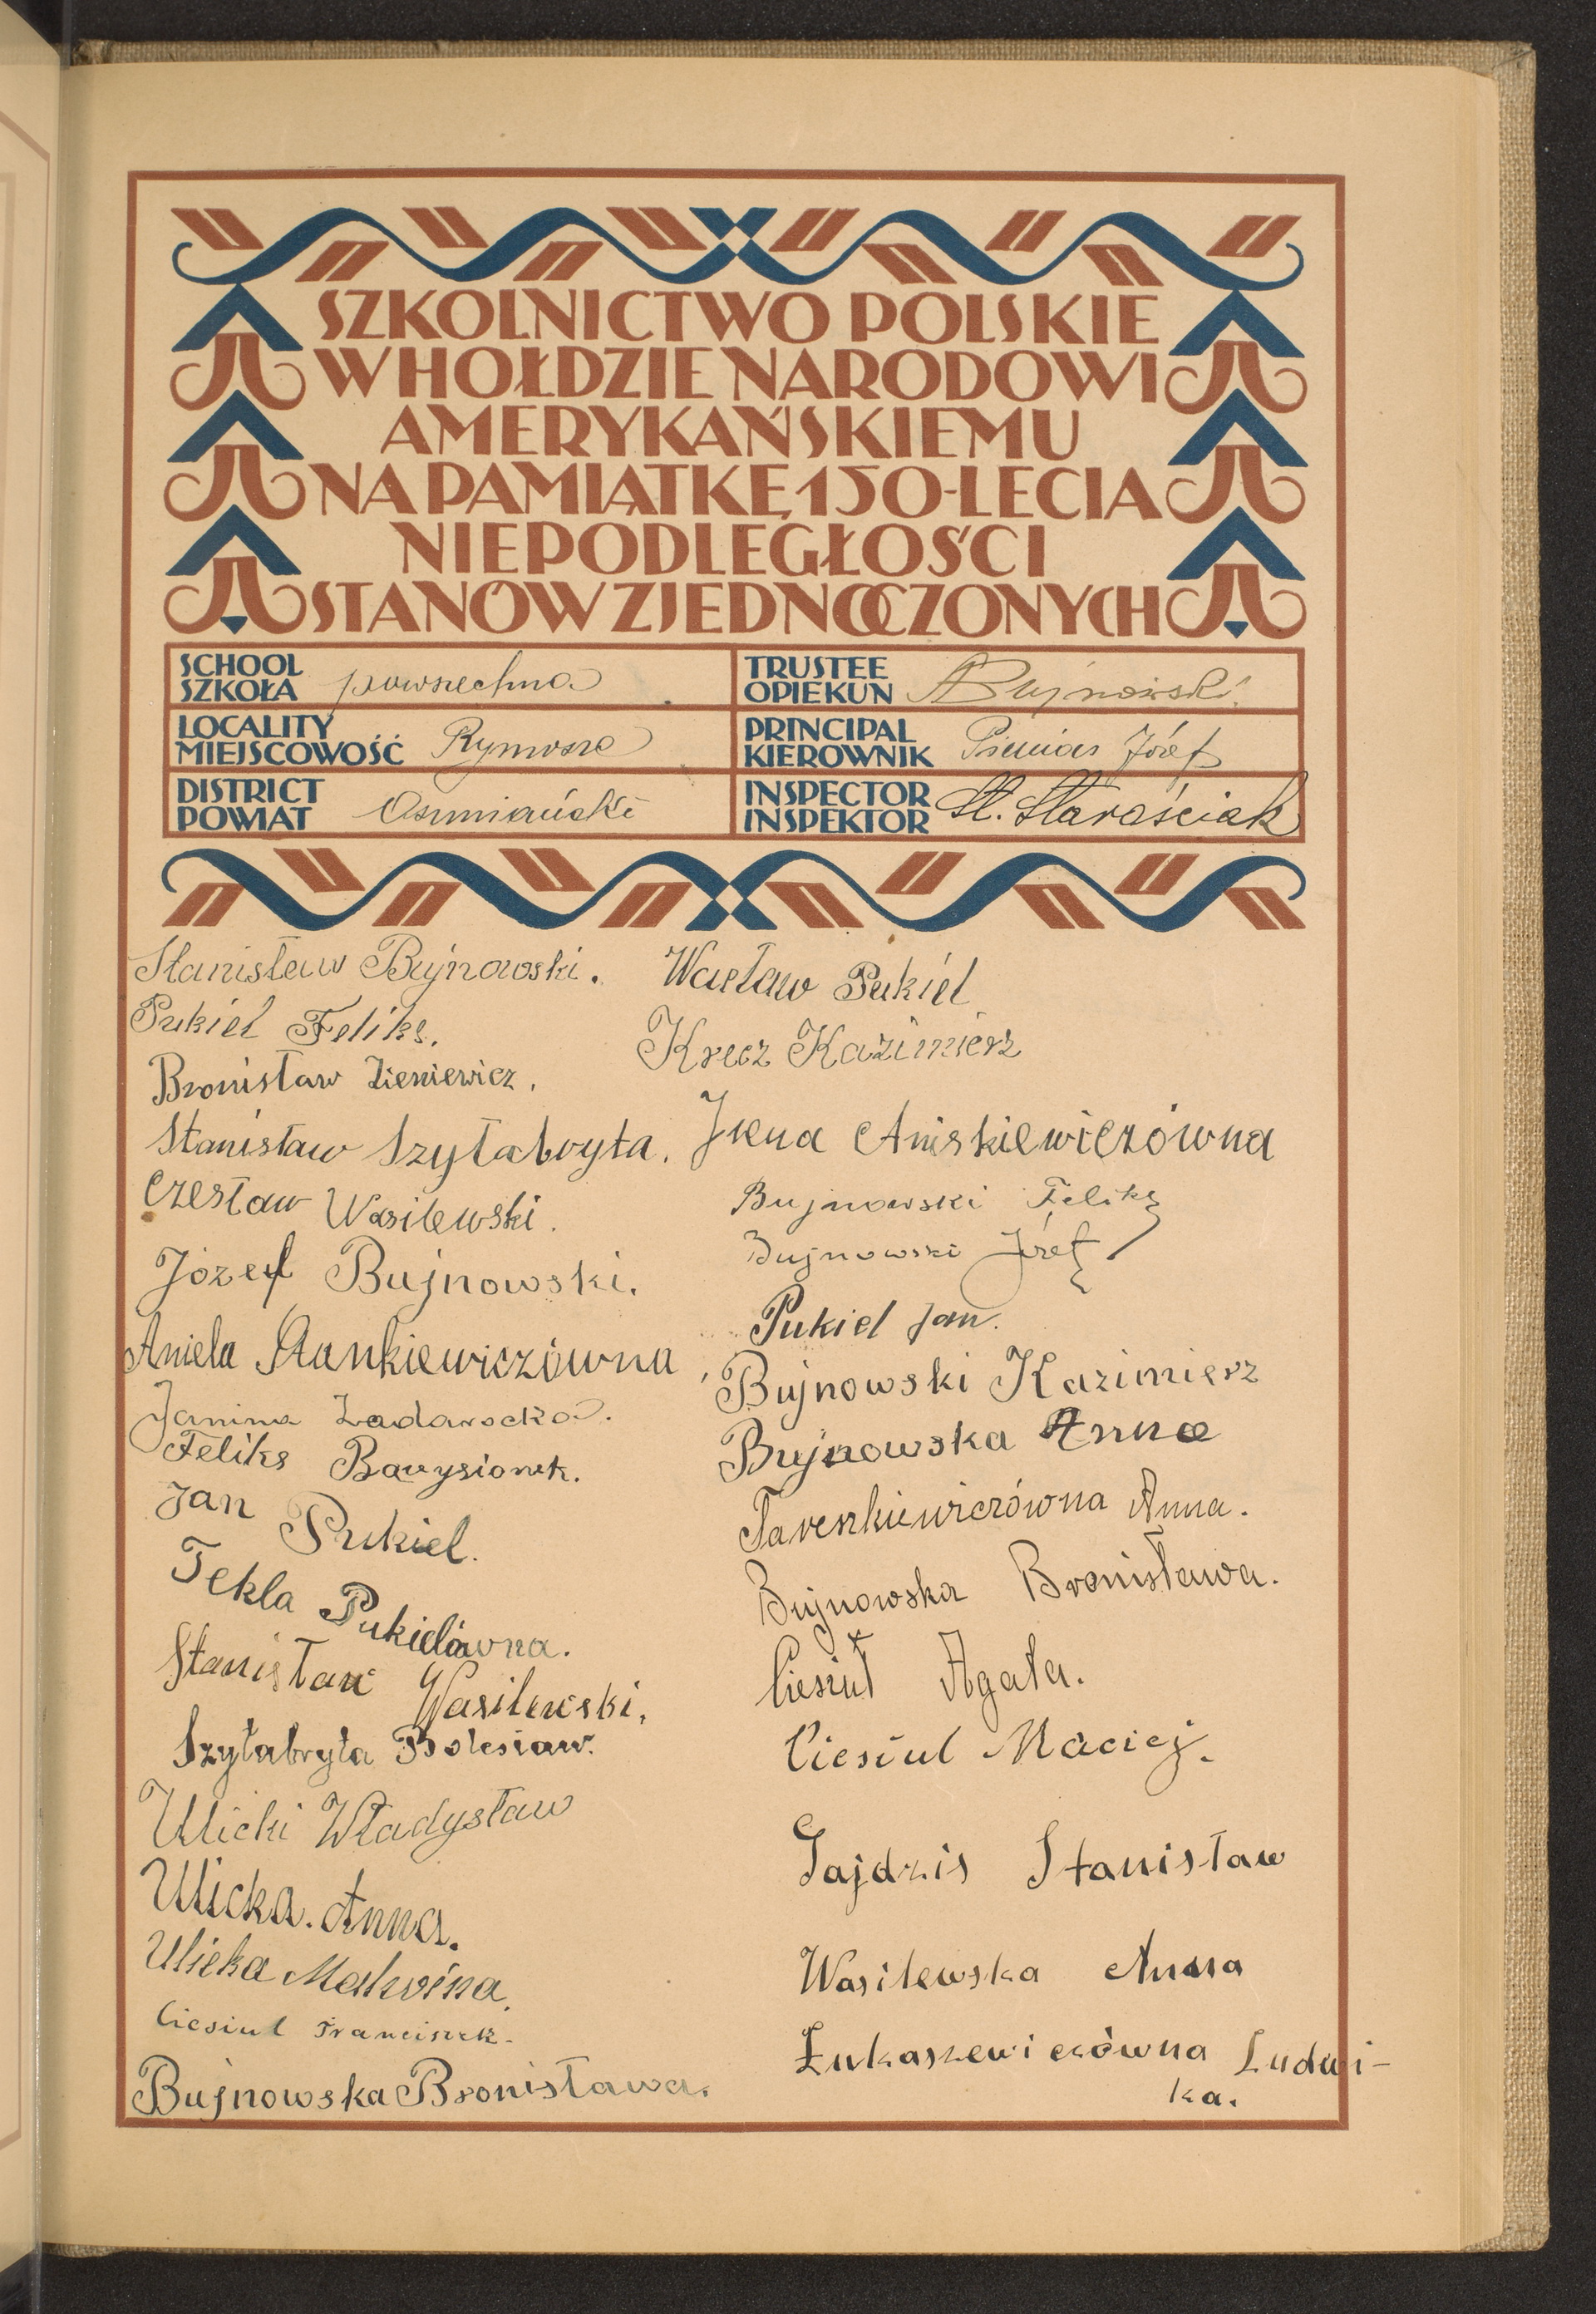 SZKOLNICTWO POLSKIE
W HOŁDZIE NARODOWI
AMERYKAŃSKIEMU
NA PAMIĄTKĘ 150-LECIA
NIEPODLEGŁOŚCI
STANÓW ZJEDNOCZONYCH
SCHOOL
SZKOŁA powszechna
TRUSTEE
OPIEKUN ABujnowski.
LOCALITY
MIEJSCOWOŚĆ
PRINCIPAL
KIEROWNIK Józef
DISTRICT
POWIAT Oszmiański
INSPECTOR
INSPEKTOR St. Staraściak
Stanisław Bujnowski.
Pukieł Feliks.
Bronisław Zieniewicz.
Stanisław Szyłabryta.
Czesław Wasilewski.
Józef Bujnowski.
Aniela Stankiewiczówna
Janina
Feliks
Jan Pukiel.
Tekla Pukielówna.
Stanisław Wasilewski.
Szyłabryta Bolesław.
Ulicki Władysław
Ulicka. Anna.
Ulicka Malwina.
Ciesiul Franciszek.
Bujnowska Bronisława.
Wacław Pukiel
Krecz Kazimierz
Irena Aniskiewiczówna
Bujnowski Feliks
Bujnowski Józef
Pukiel Jan.
Bujnowski Kazimierz
Bujnowska Anna
Tareszkiewiczówna Anna.
Bujnowska Bronisława.
Ciesiuł Agata.
Ciesiul Maciej.
Gajdzis Stanisław
Wasilewska Anna
Łukaszewiczówna Ludwi-
ka.